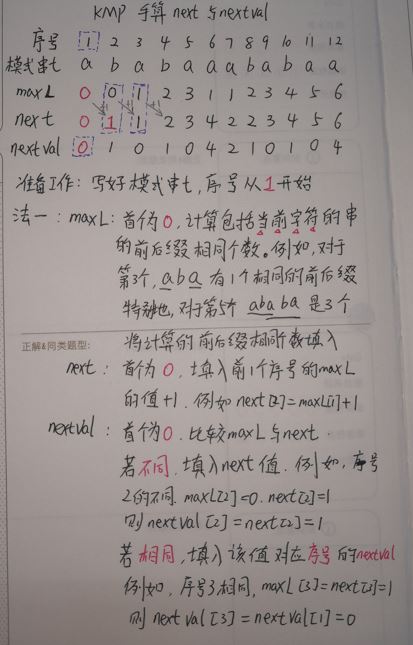 KMP 手算 next 与 nextval
序号 1 2 3 4 5 6 7 8 9 10 11 12
模式串t a b a b a a a b a b a a
maxL 0 0 1 2 3 1 1 2 3 4 5 6
next 0 1 1 2 3 4 2 2 3 4 5 6
nextval 0 1 0 1 0 4 2 1 0 1 0 4
准备工作: 写好模式串t, 序号从1开始
法一: maxL: 首个为0, 计算包括当前字符的串
的前后缀相同个数。例如, 对于
第3个, aba 有1个相同的前后缀
特别地, 对于第5个 ababa 是3个
正解&同类题型:
将计算的前后缀相同个数填入
next: 首个为0, 填入前1个序号的maxL
的值+1. 例如 next[2]=maxL[1]+1
nextval: 首个为0. 比较maxL与next.
若不同, 填入next值. 例如, 序号
2的不同. maxL[2]=0. next[2]=1
则 nextval[2]=next[2]=1
若相同, 填入该值对应序号的nextval
例如, 序号3相同, maxL[3]=next[3]=1
则 nextval[3]=nextval[1]=0